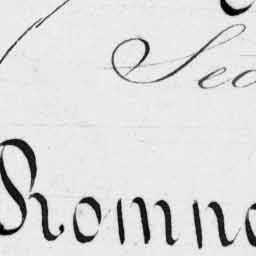 Sec
Romne